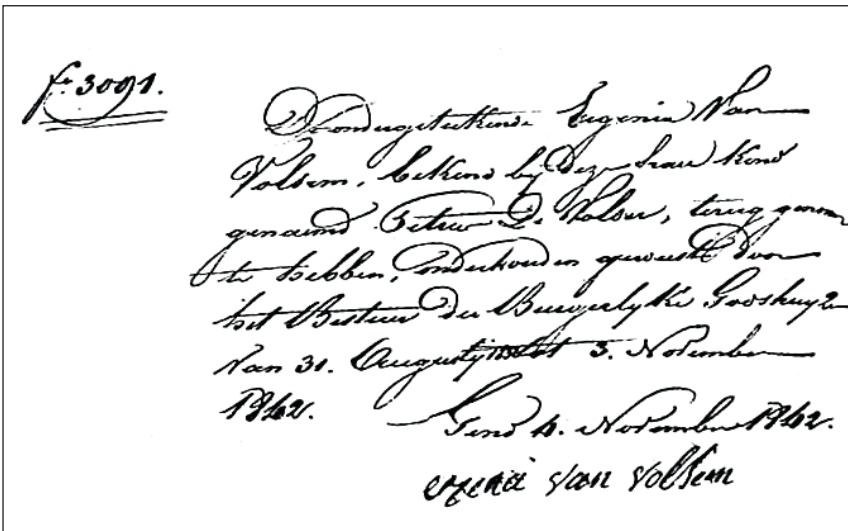 fr. 3091.
De ondergeteekende Eugenia Van
Volsem, bekend by deze haar kind
genaamd Petrus De Volder, terug genom
te hebben, onderhouden geweest door
het Bestuur der Burgerlyke Godshuyzen
van 31. Augusty tot 3. November
1842.
Gend 4. November 1842.
van volsem